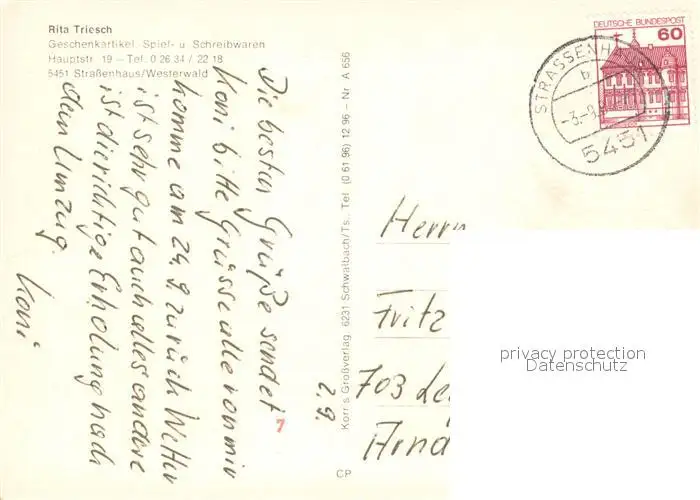 Rita Triesch
Geschenkartikel, Spiel- u. Schreibwaren
Hauptstr. 19 – Tel. 0 26 34 / 22 18
5451 Straßenhaus/Westerwald
Die besten Grüße sendet
Koni bitte Grüsse alle von mir
komme am 24.9. zurück Wetter
ist sehr gut auch alles andere
ist die richtige Erholung nach
dem Umzug.
Koni
2.9.
7
Korr's Großverlag 6231 Schwalbach/Ts. Tel. (0 61 96) 12 96 – Nr. A 656
CP
DEUTSCHE BUNDESPOST
60
STRASSENH
b
-3.-9.
5451
Herrn
Fritz
703
Arnd
privacy protection
Datenschutz